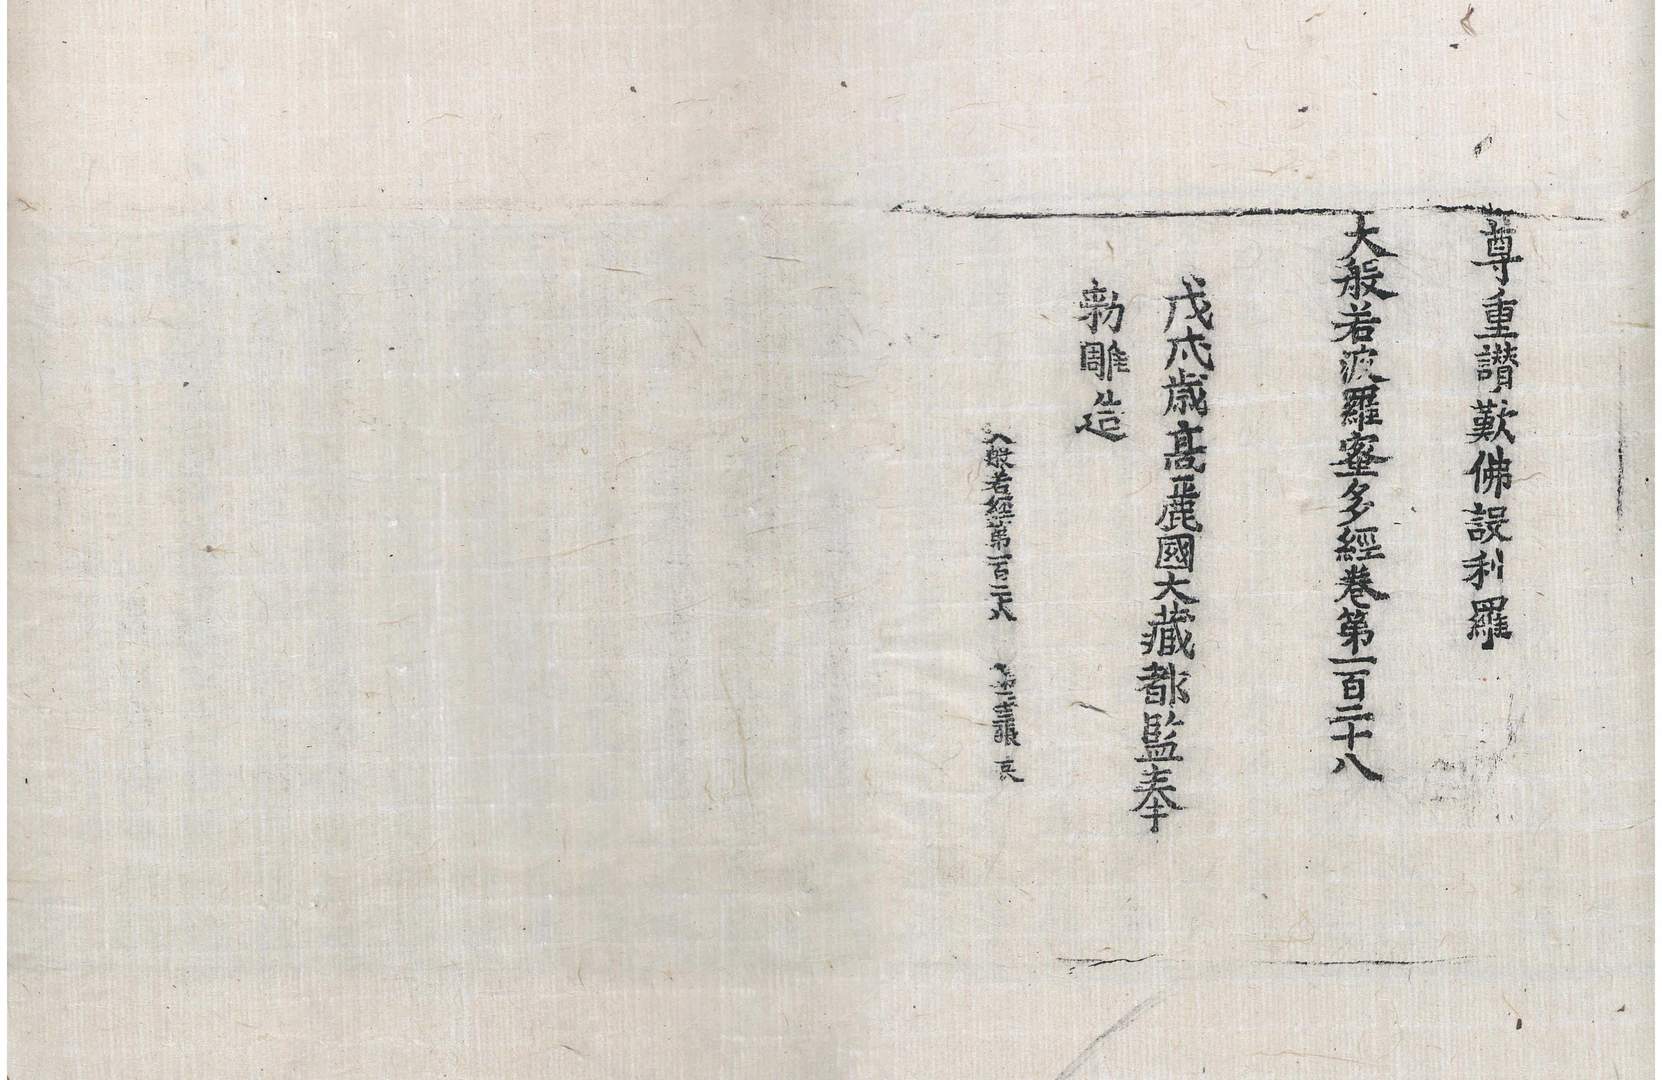 尊重讃歎佛設利羅
大般若波羅蜜多經卷第一百二十八
戊戌歲高麗國大藏都監奉
勅雕造
般若經第一百二十八 張